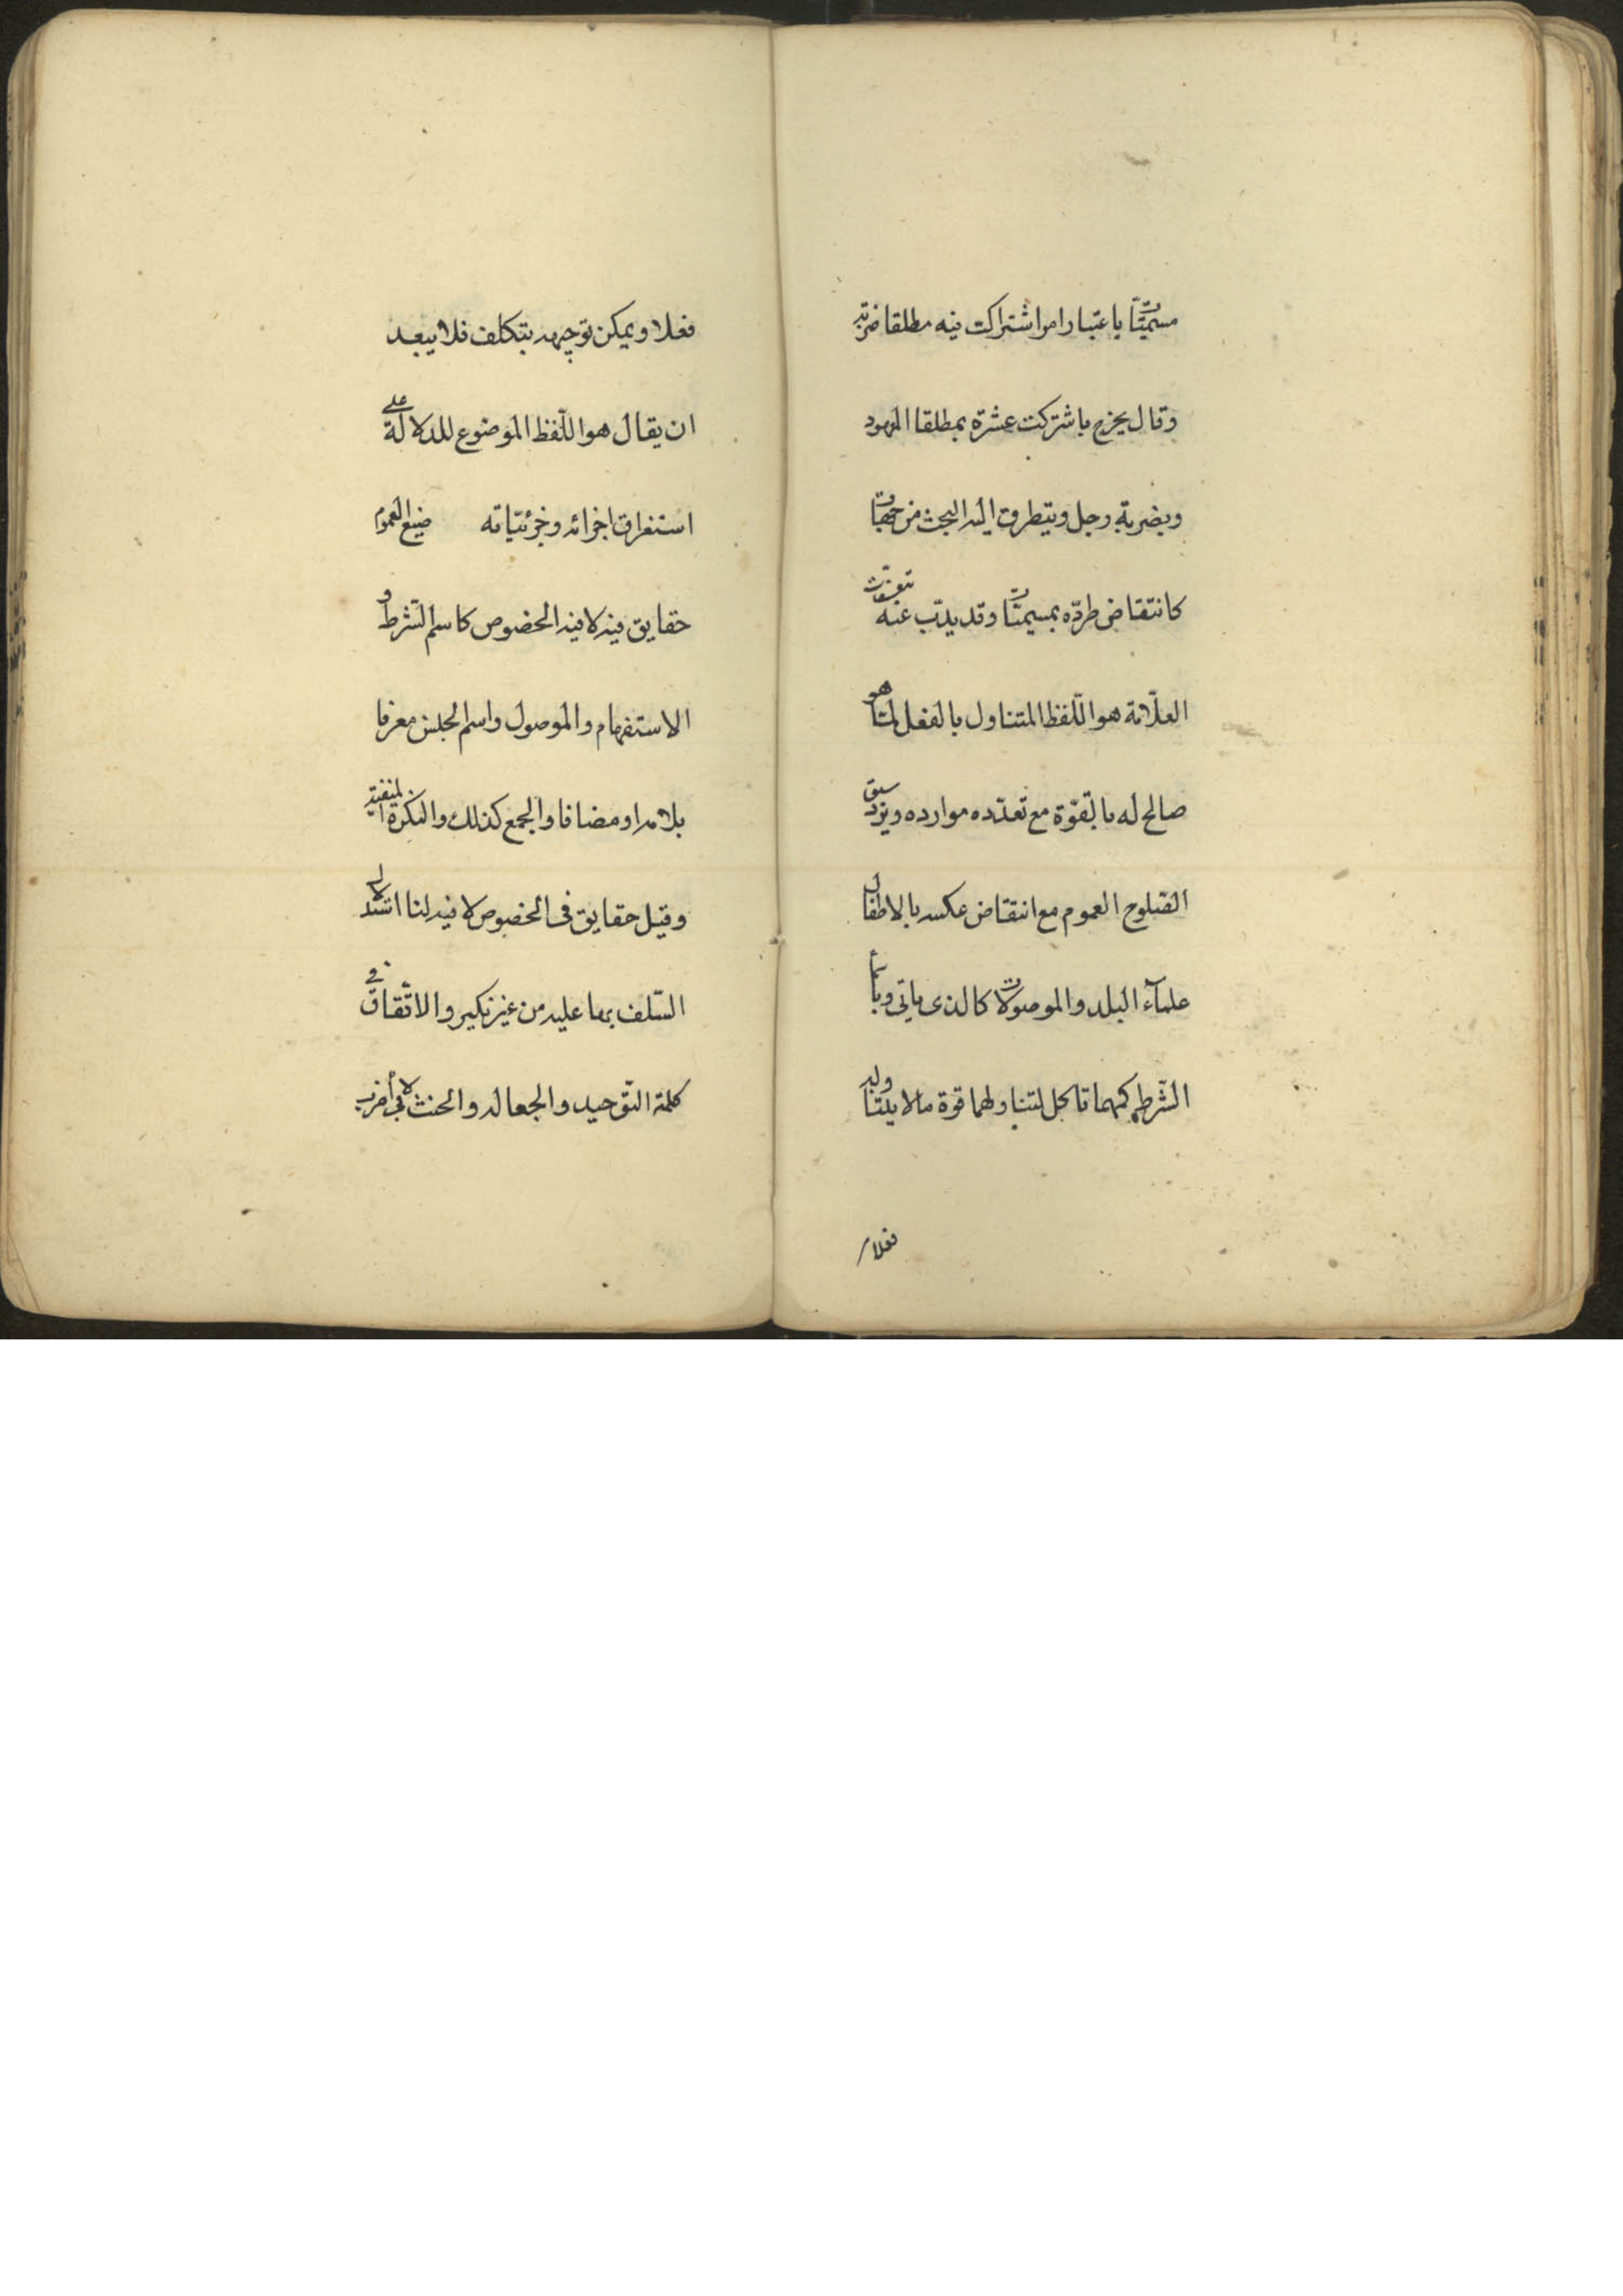 مسمّيات باعتبار امر اشتركت فيه مطلقا ضربة
وقال يخرج باشتركت عشرة بمطلقا المعهود
وبضربة رجل ويتطرق اليه البحث من جهات
كانتقاض طرده بمسميات وقد يذبّ عنه بتعسّفات
العلّامة هو اللّفظ المتناول بالفعل لما هو
صالح له بالقوّة مع تعدّده موارده ويرد سبق
الصّلوح العموم مع انتقاض عكسه بالاطفال
علمآء البلد والموصولات كالذى ياتى وباسمآء
الشّرط كمهما تاكل لتناولهما قوة ما لا يتناوله
فعلا
فعلا ويمكن توجيهه بتكلف فلا يبعد
ان يقال هو اللّفظ الموضوع للدلالة على
استغراق اجزائه وجزئيّاته صيغ العموم
حقايق فيه لا فى الخصوص كاسم الشّرط و
الاستفهام والموصول واسم الجنس معرفا
بلام او مضافا والجمع كذلك والنكرة المنفية
وقيل حقايق فى الخصوص لا فيه لنا استدلال
السّلف بها عليه من غير نكير والاتّفاق فى
كلمة التّوحيد والجعاله والحنث فى لا أضرب